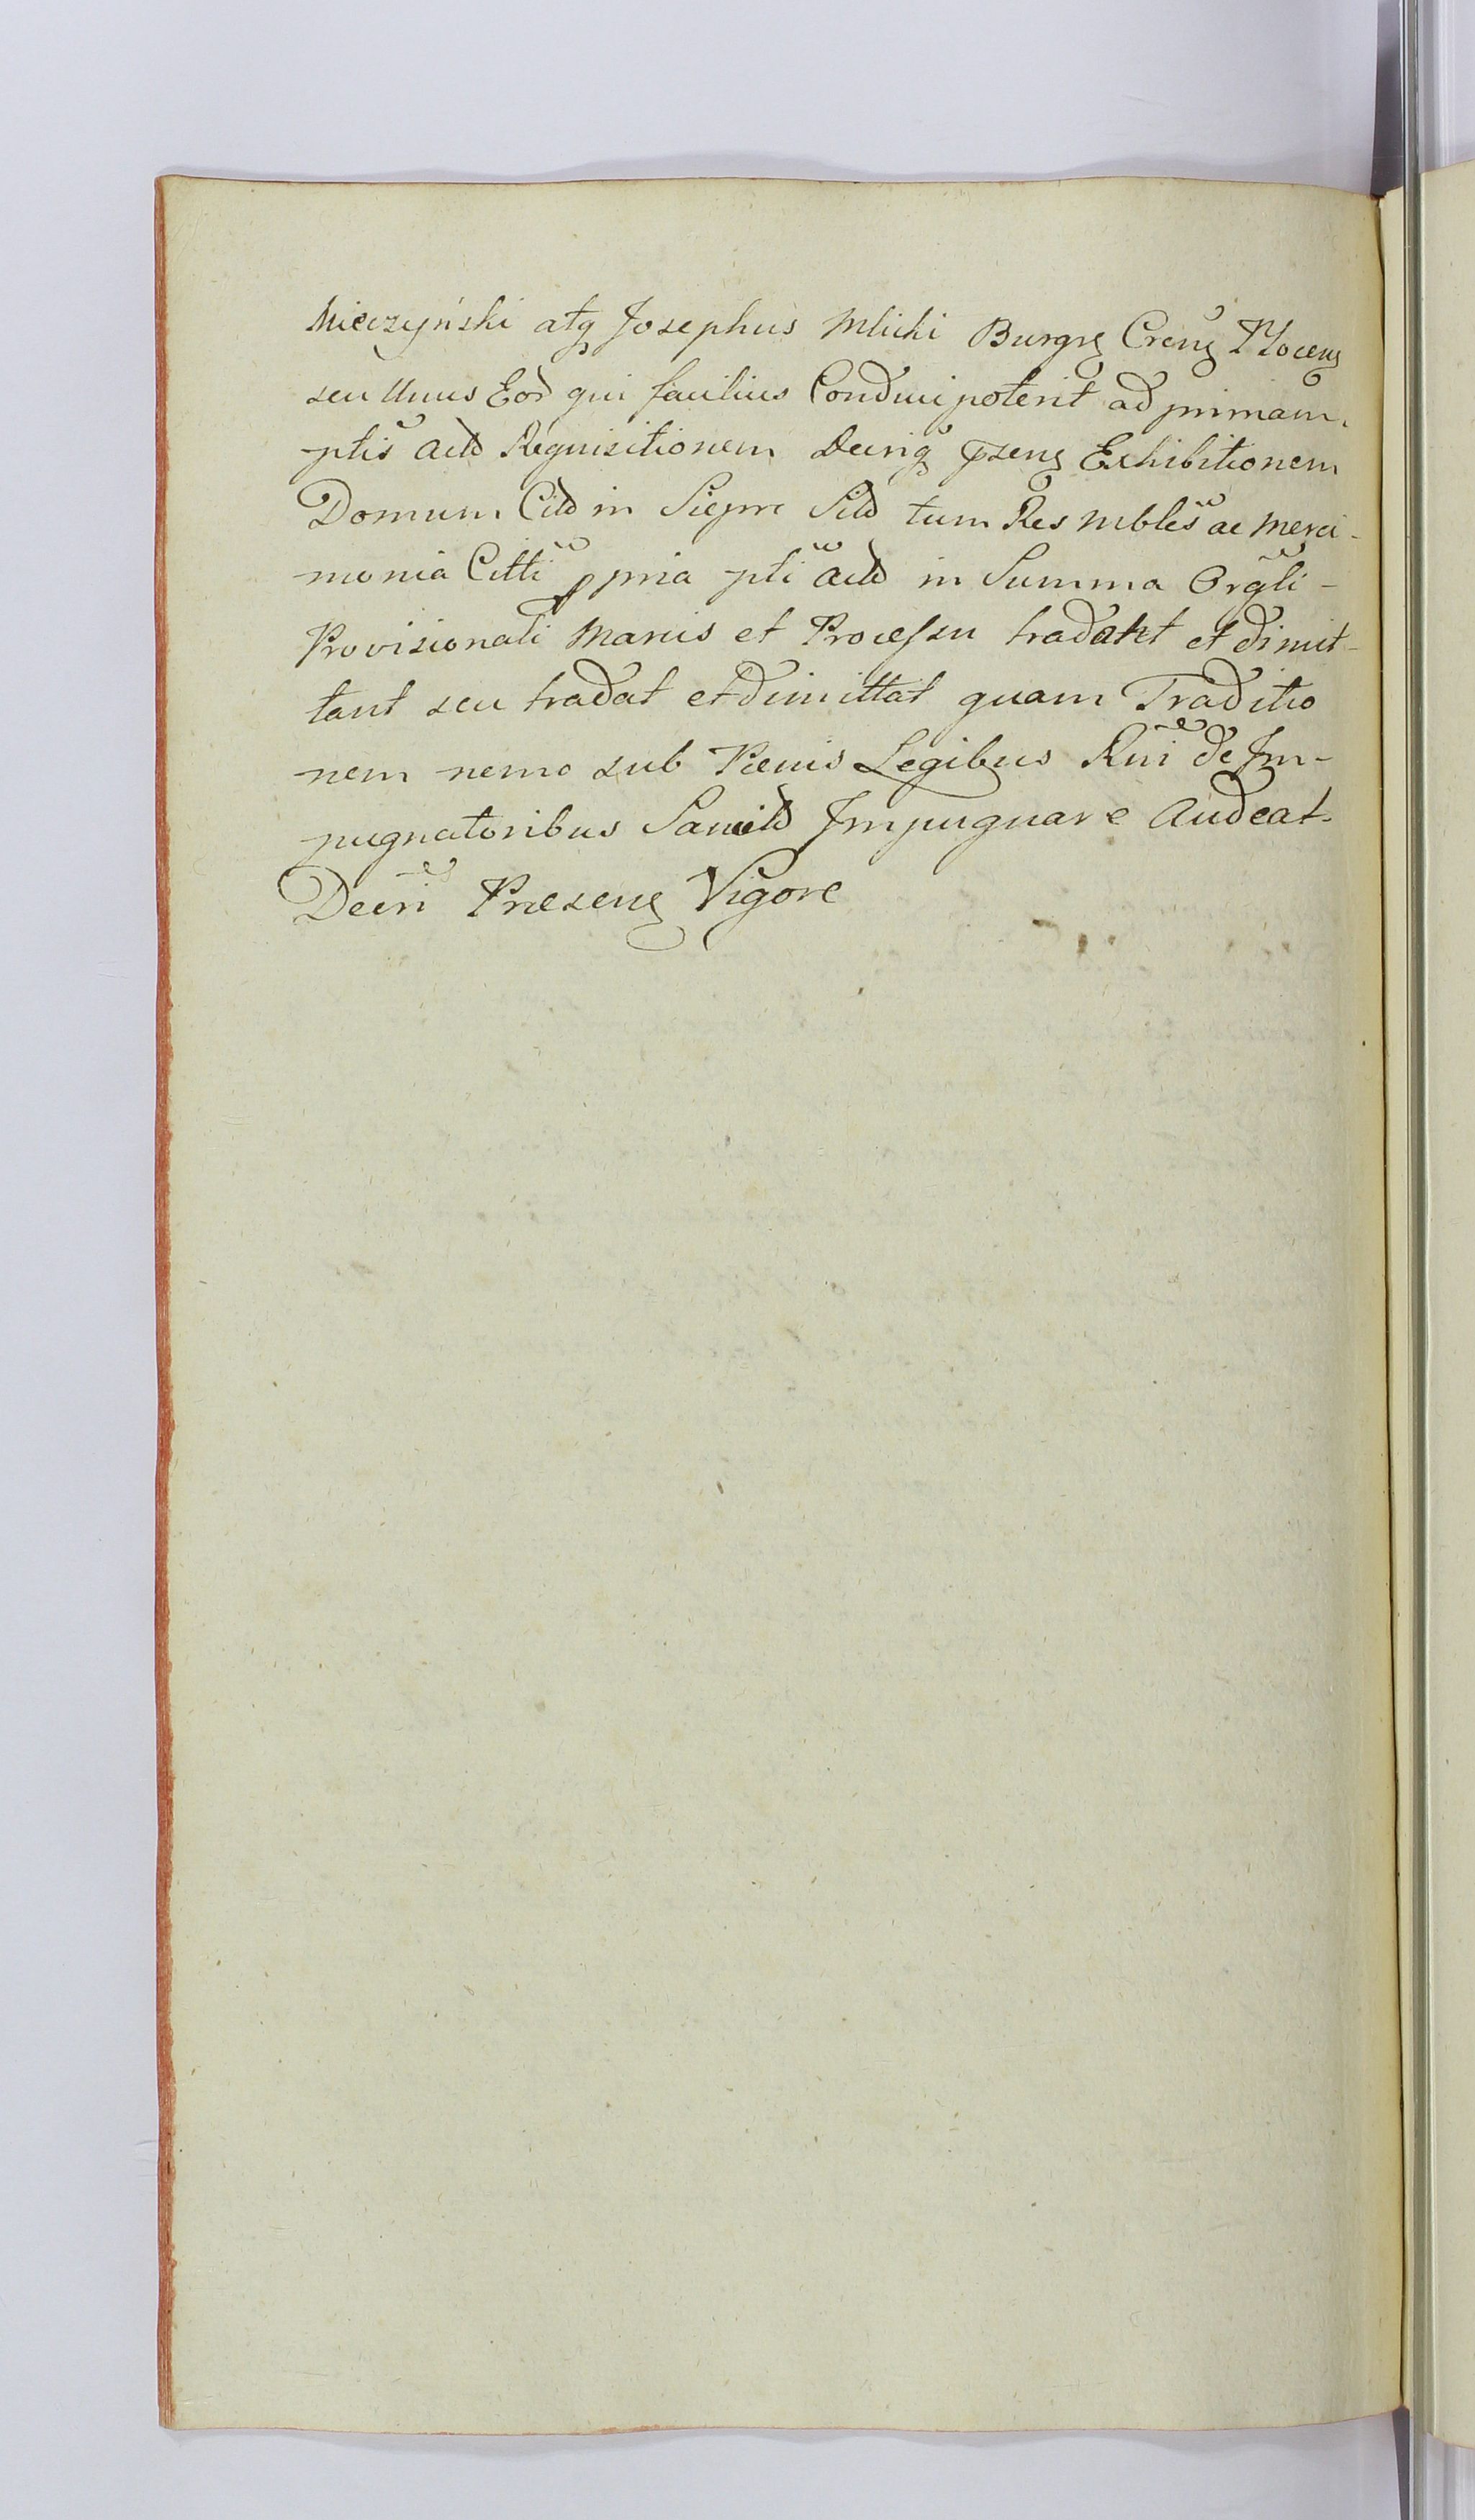 Mieczyński atq Josephus Mlicki Burgrs Crens Plocens
seu Unus Eord qui facilius Conduci poterit ad primam
ptis actd Requisitionem Decriq pzens Exhibitionem
Domum Citd in Sieprc Sitd tum Res mbles ac merci-
monia Citti ppria pti actd in Summa Orgli-
Provisionali Manus et Processu tradant et dimit-
tant seu tradat et dimittat quam Traditio
nem nemo sub Pœnis Legibus Rni de Im-
pugnatoribus Sancitd Impugnare Audeat.
Decri Præsens Vigore